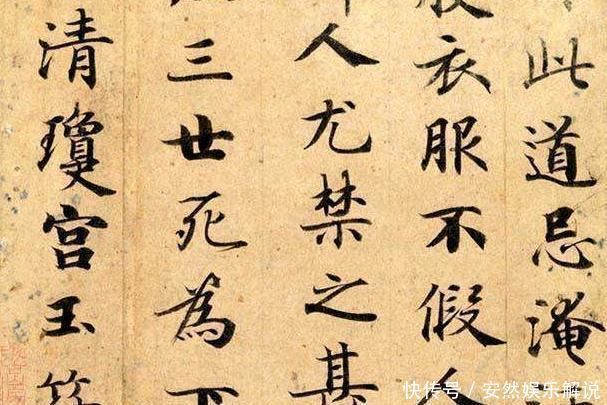 此道忌淹
衣服不假人
人尤禁之甚
三世死為下
清瓊宮玉符
快传号 / 安然娱乐解说